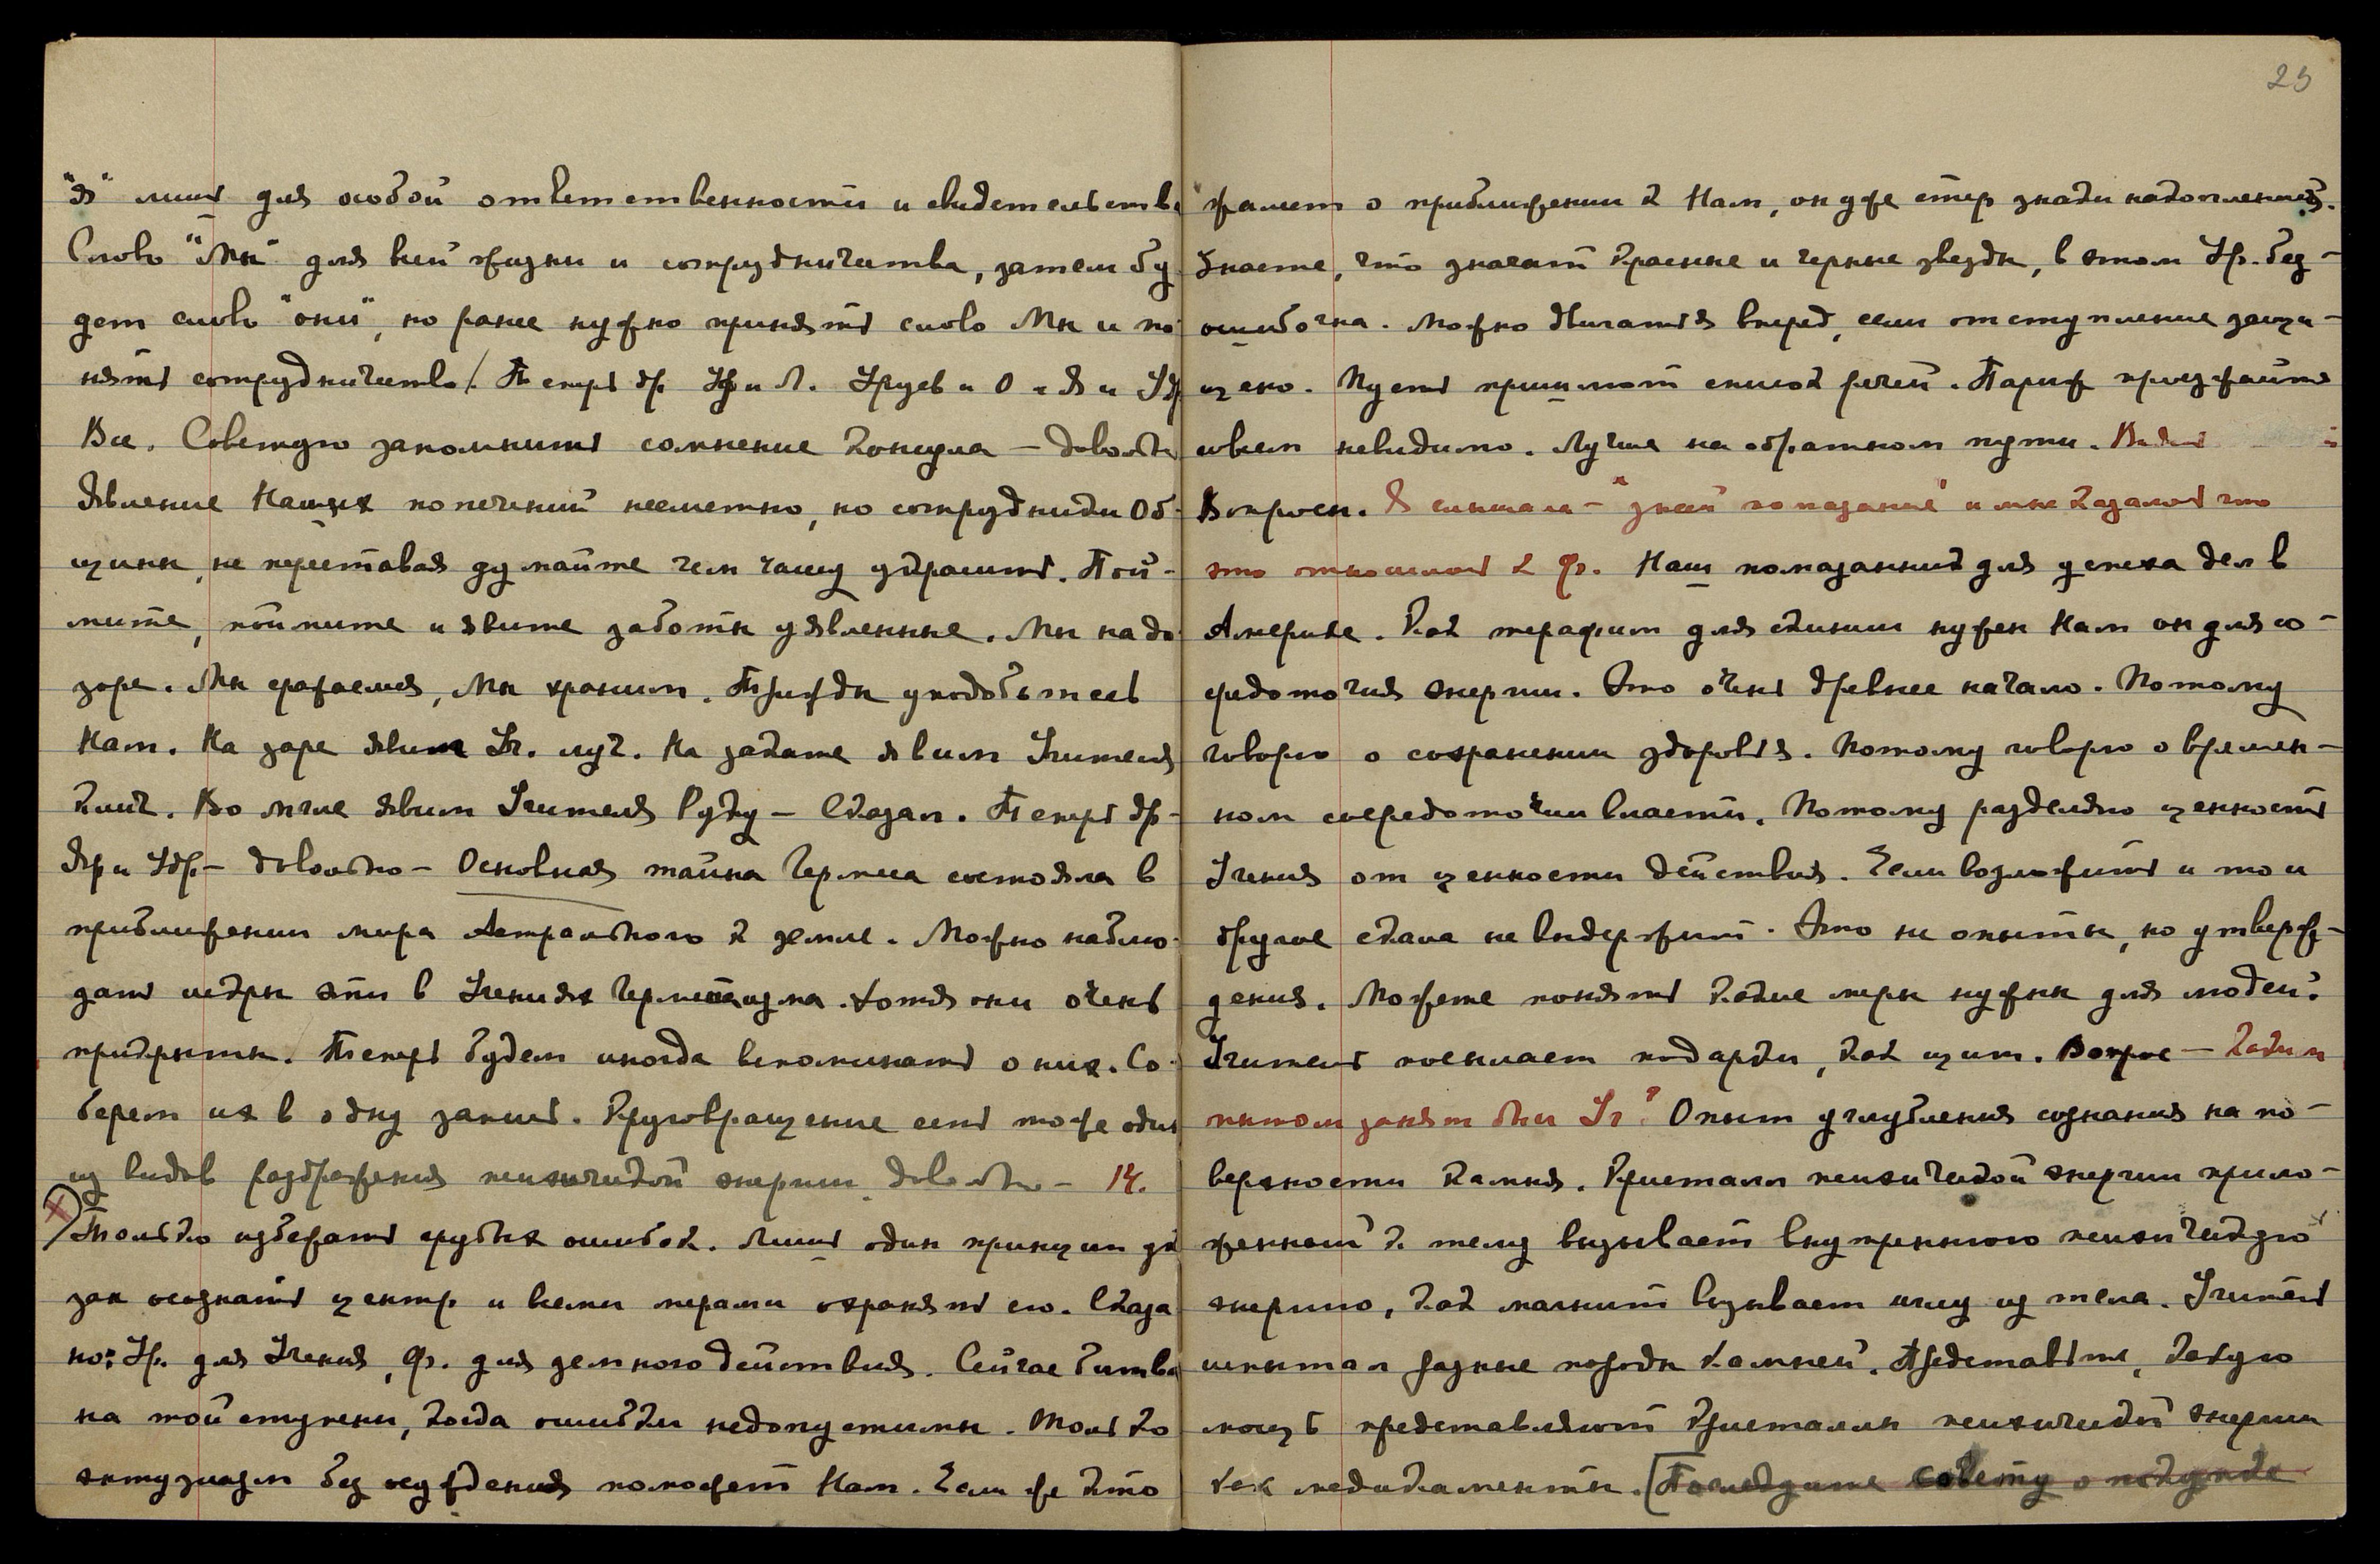 "я" лишь для особой ответственности и свидетельства
Слово "Мы" для всей жизни и сотрудничества, затем бу
дет слово "они", но ранее нужно принять слово Мы и по
нять сотрудничество/. Теперь др. Ур и Л. Урусв и О и Я и Удр
Все. Советую запомнить сомнение консула — довольно
Явление Наших попечений несметно, но сотрудники Об-
щины, не переставая думайте чем чашу украсить. Пой-
мите, поймите и явите заботы уявленные. Мы на до
зоре. Мы сражаемся, Мы храним. Трижды уподобьтесь
Нам. На заре явим Уч. луч. На закате явим Учителя
Клич. Во мгле явим Учителя Руку — Сказал. Теперь др-
Яр и Удр — довольно — Основная тайна Гермеса состояла в
приближении мира Астрального к земле. Можно наблю-
дать искры эти в Учениях Герметизма. хотя они очень
прикрыты. Теперь будем иногда вспоминать о них. Со-
берем их в одну запись. Круговращение есть тоже один
из видов раздражения психической энергии. довольно — 14.
Только избегать грубых ошибок. Лишь один принцип ука
зан осознать центр и всеми мерами охранять его. Сказа
но: Ур. для Учения, Ф. для земного действия. Сейчас битва
на той ступени, когда ошибки недопустимы. Только
энтузиазм без осуждения поможет Нам. Если же кто
23
жалеет о приближении к Нам, он уже стер знаки накоплений.
Знаете, что значат Красные и черные звезды, в этом Ур. без-
ошибочна. Можно двигаться вперед, если отступление защи-
щено. Пусть пришлют список речей. Париж проезжайте
совсем невидимо. Лучше на обратном пути.
Вопросы. Я слышала — "знай помазание" и мне казалось что
это относилось к Ф. Наш помазанный для успеха дел в
Америке. Как терафим для стихии нужен Нам он для со-
средоточия энергии. Это очень древнее начало. Потому
говорю о сохранении здоровья. Потому говорю о времен-
ном сосредоточии власти. Потому разделяю ценность
Учения от ценности действия. Если возложить и то и
другое скала не выдержит. Это не опыты, но утверж-
дения. Можете понять какие меры нужны для людей?
Учитель посылает подарки, как щит. Вопрос — Каким
опытом занят был Уч.? Опыт углубления сознания на по-
верхности Камня. Кристалл психической энергии прило-
женный к телу вызывает внутреннюю психическую
энергию, как магнит вызывает иглу из тела. Учитель
испытал разные породы камней. Представьте, какую
мощь представляют Кристаллы психической энергии
как медикаменты. [Последуйте совету о